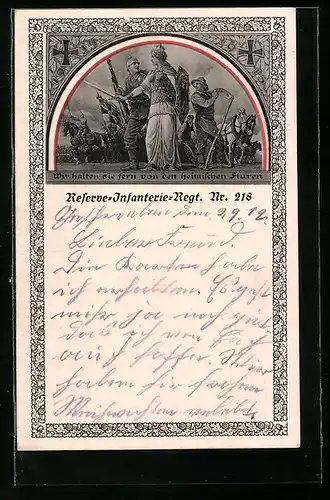 Wir halten sie fern von den heimischen Fluren
Reserve-Infanterie-Regt. Nr. 218
den 29.12.
Lieber Freund.
Die Karten habe
ich erhalten. Es geht
mihr ja noch gut
das ich von Euch
auch hoffe. Wier
haben hir frohen
Weihnachten verlebt.